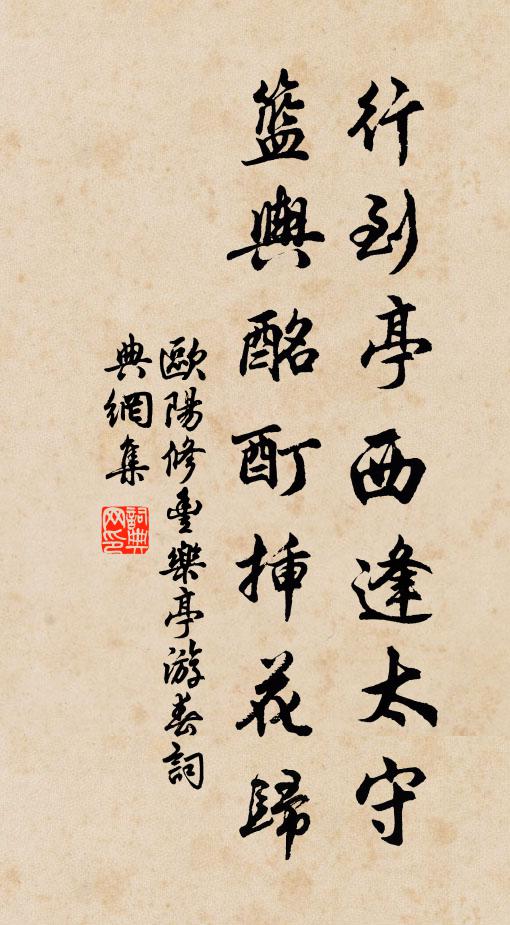 行到亭西逢太守
籃輿酩酊插花歸
歐陽修豐樂亭游春詞
典網集
詞典
网印